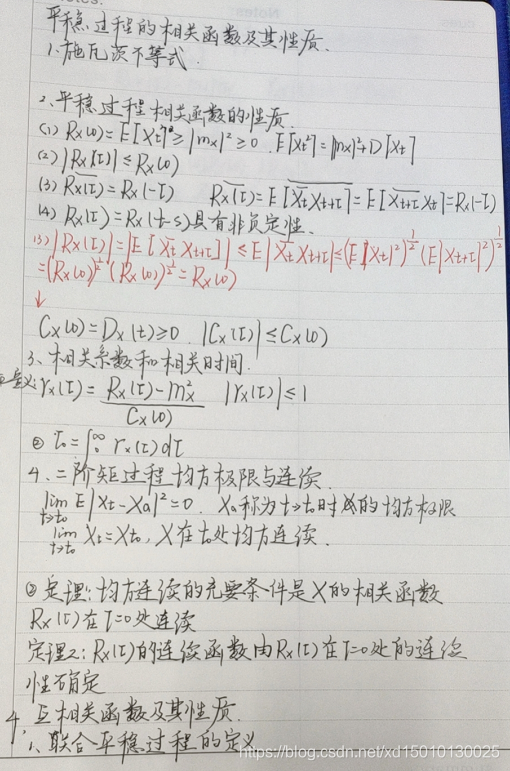 平稳过程的相关函数及其性质.
1.施瓦茨不等式.
2.平稳过程相关函数的性质.
(1) Rx(0)=E|Xt|²≥|mx|²≥0. E|Xt²|=|mx|²+D[Xt]
(2) |Rx(τ)|≤Rx(0)
(3) \overline{Rx(τ)}=Rx(-τ) \overline{Rx(τ)}=\overline{E[\overline{Xt}Xt+τ]}=E[\overline{Xt+τ}Xt]=Rx(-τ)
(4) Rx(τ)=Rx(t-s)具有非负定性.
|Rx(τ)|=|E[\overline{Xt}Xt+τ]|≤E|\overline{Xt}Xt+τ|≤(E|Xt|²)^{1/2}(E|Xt+τ|²)^{1/2}
=(Rx(0))^{1/2}(Rx(0))^{1/2}=Rx(0)
↓
Cx(0)=Dx(t)≥0. |Cx(τ)|≤Cx(0)
3、相关系数和相关时间.
定义: rx(τ)=\frac{Rx(τ)-m²x}{Cx(0)} |rx(τ)|≤1
② τ₀=∫₀^∞ rx(τ)dτ
4、二阶矩过程均方极限与连续.
lim_{t→t₀} E|Xt-Xa|²=0. Xa称为t→t₀时X的均方极限
lim_{t→t₀} Xt=Xt₀, X在t₀处均方连续.
② 定理1:均方连续的充要条件是X的相关函数
Rx(τ)在τ=0处连续
定理2: Rx(τ)的连续函数由Rx(τ)在τ=0处的连续
性确定
4、互相关函数及其性质.
1、联合平稳过程的定义
https://blog.csdn.net/xd15010130025